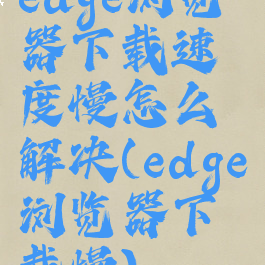 edge浏览
器下载速
度慢怎么
解决(edge
浏览器下
载慢)